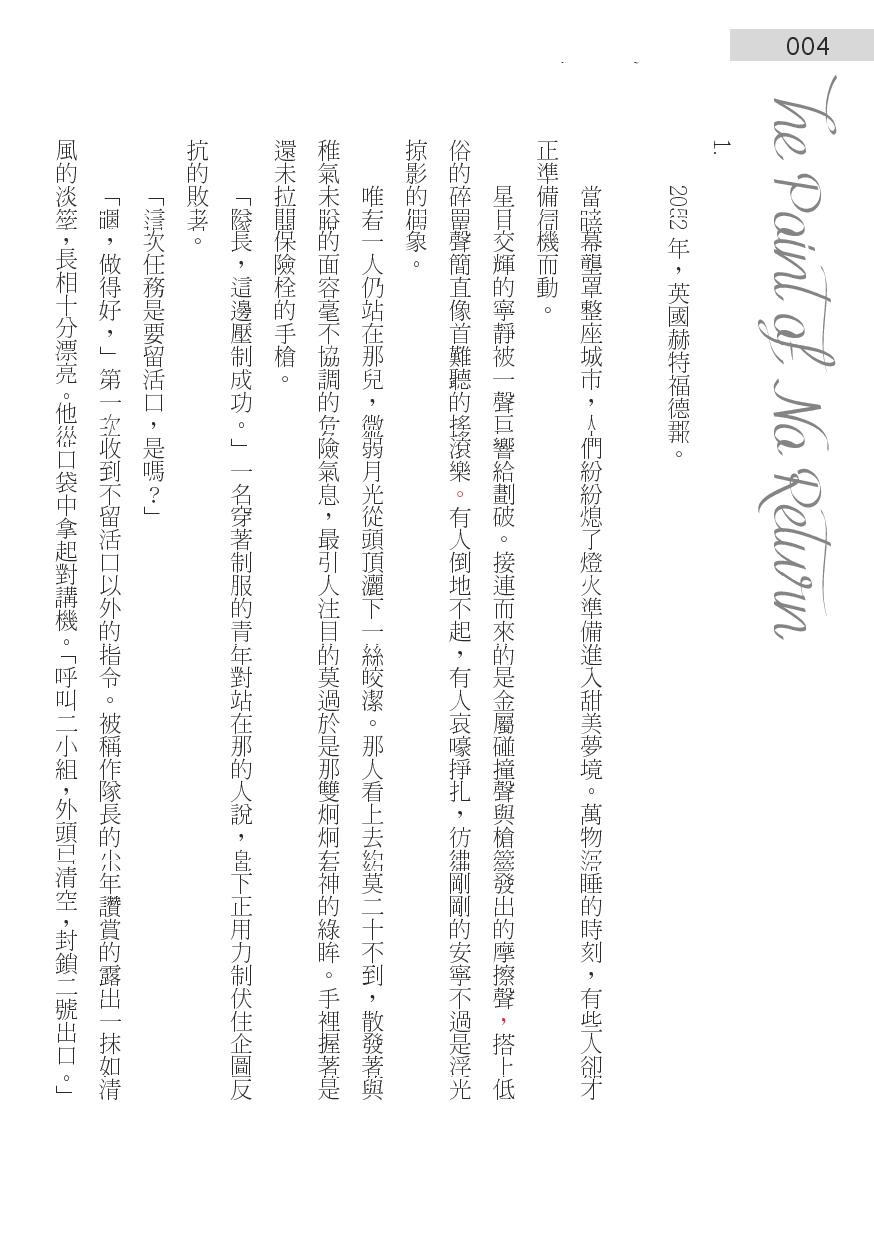 004
The Point of No Return
1.
2052 年，英國赫特福德郡。
當暗幕壟罩整座城市，人們紛紛熄了燈火準備進入甜美夢境。萬物沉睡的時刻，有些人卻才
正準備伺機而動。
星月交輝的寧靜被一聲巨響給劃破。接連而來的是金屬碰撞聲與槍簧發出的摩擦聲，搭上低
俗的碎罵聲簡直像首難聽的搖滾樂。有人倒地不起，有人哀嚎掙扎，彷彿剛剛的安寧不過是浮光
掠影的假象。
唯有一人仍站在那兒，微弱月光從頭頂灑下一絲皎潔。那人看上去約莫二十不到，散發著與
稚氣未脫的面容毫不協調的危險氣息，最引人注目的莫過於是那雙炯炯有神的綠眸。手裡握著是
還未拉開保險栓的手槍。
「隊長，這邊壓制成功。」一名穿著制服的青年對站在那的人說，身下正用力制伏住企圖反
抗的敗者。
「這次任務是要留活口，是嗎？」
「嗯，做得好，」第一次收到不留活口以外的指令。被稱作隊長的少年讚賞的露出一抹如清
風的淡笑，長相十分漂亮。他從口袋中拿起對講機。「呼叫二小組，外頭已清空，封鎖二號出口。」